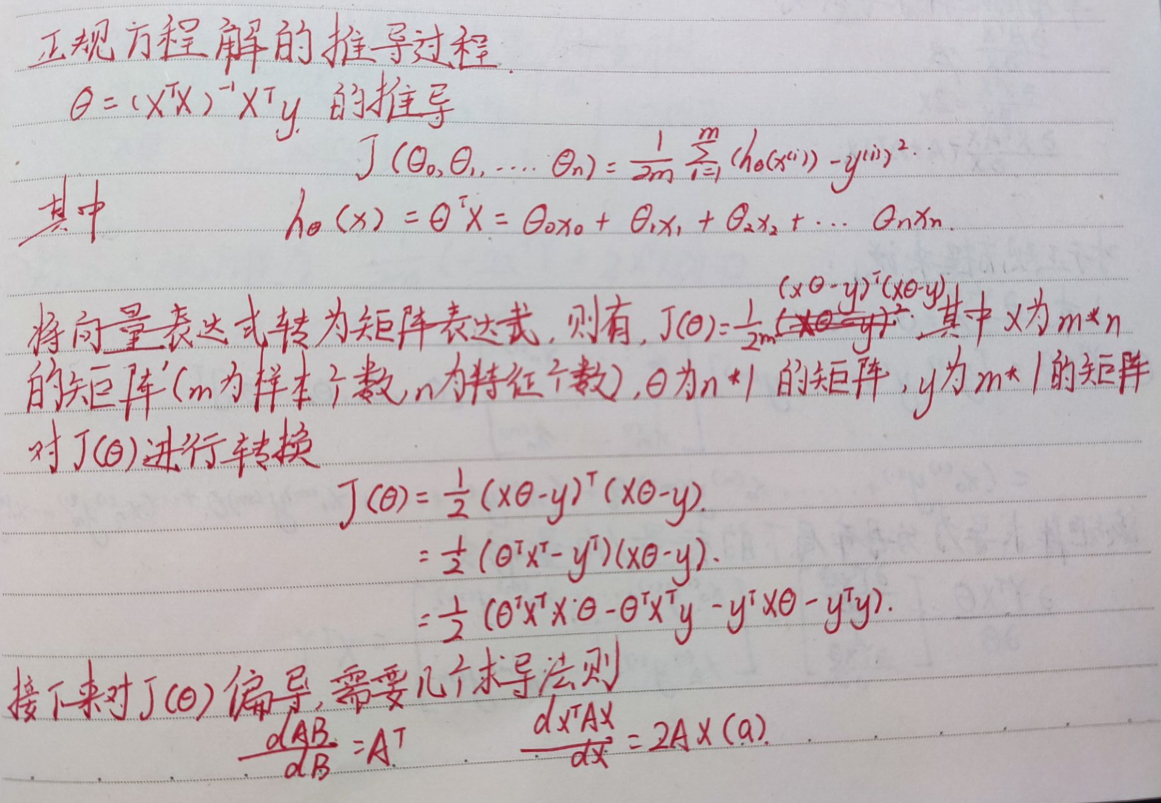 正规方程解的推导过程.
θ = (XᵀX)⁻¹Xᵀy 的推导
J(θ₀,θ₁,....θₙ) = 1/2m ∑ᵢ₌₁ᵐ (hθ(x⁽ⁱ⁾) - y⁽ⁱ⁾)².
其中 hθ(x) = θᵀX = θ₀x₀ + θ₁x₁ + θ₂x₂ + ... θₙxₙ.
将向量表达式转为矩阵表达式,则有,J(θ)=1/2m (xθ-y)ᵀ(xθ-y).其中X为m*n
的矩阵(m为样本个数,n为特征个数),θ为n*1的矩阵,y为m*1的矩阵
对J(θ)进行转换
J(θ) = 1/2 (Xθ-y)ᵀ(Xθ-y).
= 1/2 (θᵀXᵀ-yᵀ)(Xθ-y).
= 1/2 (θᵀXᵀXθ-θᵀXᵀy-yᵀXθ-yᵀy).
接下来对J(θ)偏导,需要几个求导法则
dAB/dB = Aᵀ dXᵀAX/dX = 2AX(a)